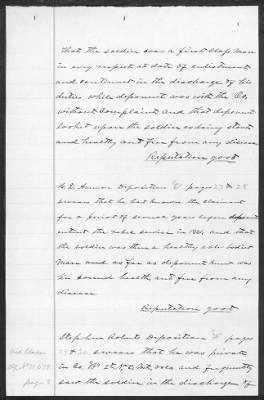 that the soldier was a first class man
in every respect at date of enlistment
and continued in the discharge of his
duties while deponent was with the Co,
without complaint and that deponent
looked upon the soldier as being stout
and healthy and free from any disease
Reputation good
H. D. Deposition "E" pages 27 & 28
swears that he has known the claimant
for a period of several years before deponent
entered the rebel service in 1861, and that
the soldier was then a healthy able bodied
man and as far as deponent knew was
in sound health and free from any
disease
Reputation good
Stephen Roberts Deposition "F" pages
29 & 30 swears that he was private
in Co. 2d N.C. Mtd. Vols and frequently
saw the soldier in the discharge of
page 5